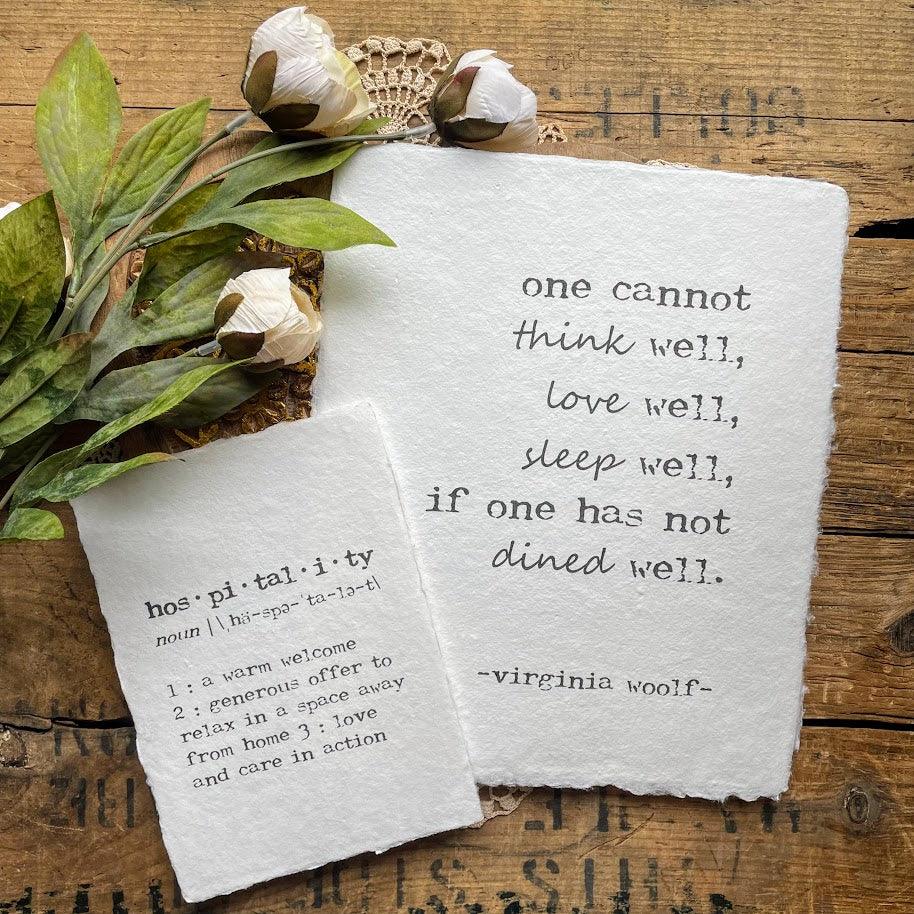 one cannot
think well,
love well,
sleep well,
if one has not
dined well.
-virginia woolf-
hos·pi·tal·i·ty
noun | \ˌhä-spə-ˈta-lə-t\
1 : a warm welcome
2 : generous offer to
relax in a space away
from home 3 : love
and care in action